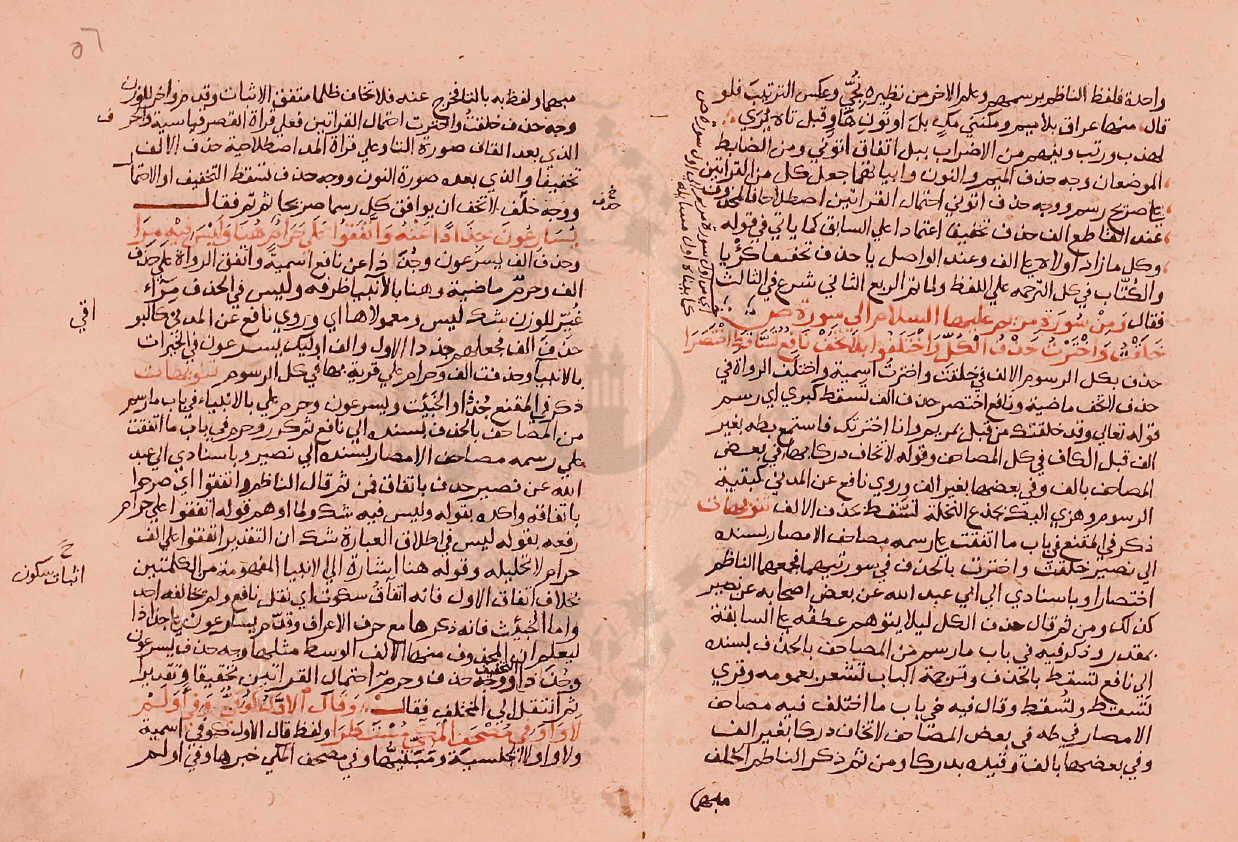 واحدة فلفظ الناظم برسمهم وعلم الاخر من نظيره نُجِّي وعكس الترتيب فلو
قال منها عراق بلا ميم ومكتبي مك بل او نون هاء وقبل تاه يُرى
لهذب ورتب ويفهم من الاضراب ببل اتفاق اتوني ومن الضابط
الموضعان وجه حذف الميم والنون واثباتهما جعل كل من القراتين
على صريح رسم ووجه حذف اتوني احتمال القراتين اصطلاحا فالمحذوف
عند القاطع الف حذف تخفيفا اعتمادا على السابق كما ياتي في قوله
وكل ما زاد اولاه على الف وعند الواصل يا حذف تخفيفا كرؤيا
والكُتّاب في كل الترجمة على اللفظ ولما تم الربع الثاني شرع في الثالث
فقال ومن سورة مريم عليها السلام الى سورة ص
خلقتُ واخترتُ حذف الكل واختلفوا بلا تخف نافع تساقط اختصرا
حذف بكل الرسوم الالف في خلقت واخترت اسمية واختلف الرواة في
حذف لاتخف ماضية ونافع اختصر حذف الف تسقط كبرى اي رسم
قوله تعالى وقد خلقتك من قبل بمريم وانا اخترتك فاستمع بطه بغير
الف قبل الكاف في كل المصاحف وقوله لا تخاف دركا بها في بعض
المصاحف بالف وفي بعضها بغير الف وروي نافع عن المدني كبقية
الرسوم وهزي اليك بجذع النخلة تسقط بحذف الالف تنويهات
ذكر في المقنع في باب ما اتفقت على رسمه مصاحف الامصار بسنده
الى نصير خلقت واخترت بالحذف في سورتيهما فجمعها الناظم
اختصارا وباسنادي الى ابي عبد الله عن بعض اصحابه عن نصير
كذلك ومن ثم قال حذف الكل ليلا يتوهم عطفه على السابقة
بمقدر وذكر فيه في باب ما رسم من المصاحف بالحذف بسنده
الى نافع تسقط بالحذف وترجمة الباب تشعر بعمومه وقرى
تَسَّقط وتُسقط وقال فيه في باب ما اختلف فيه مصاحف
الامصار في طه في بعض المصاحف لا تخاف دركا بغير الف
وفي بعضها بالف وقيده بدركا ومن ثم ذكر الناظم الخلف
مبهما
مبهما ولفظ به بالتا فخرج عنه فلا تخاف ظلما متفق الاثبات وقدم واخر للوزن
وجه حذف خلقت واخترت احتمال القراتين فعلى قراة القصر قياسية واخر
الذي بعد القاف صورة التاء وعلى قراة المد اصطلاحية حذف الالف
تخفيفا والذي بعده صورة النون ووجه حذف تسقط التخفيف او الاحتما
ووجه خلف لا تخف ان يوافق كل رسما صريحا ثم ثم فقال
يسارعون جذاذا عنه واتفقوا على حرام هنا وليس فيه مرا
وحذف الف يسرعون وجُذاذا عن نافع اسمية واتفق الرواة على حذف
الف وحرم ماضية وهنا بالانبيا ظرفه وليس في الحذف مراء
غيّر للوزن شك ليس ومعمولاها اي وروي نافع عن المدني كالبو
حذف الف فجعلهم جذذا الاول والف اوليك يسرعون في الخيرات
بالانبيا وحذفت الف وحرام على قرية بها في كل الرسوم تنويهات
ذكر في المقنع جُذذا والخبئت ويسرعون وحرم على بالانبياء في باب ما رسم
من المصاحف بالحذف بسنده الى نافع ثم كرر وحرم في باب ما اتفقت
على رسمه مصاحف الامصار بسنده الى نصير وباسنادي الى عبد
الله عن نصير حذف باتفاق فمن ثم قال الناظم واتفقوا اي صرحوا
باتفاقه واكده بقوله وليس فيه شك ولما اوهم قوله اتفقوا على حرام
رفعه بقوله ليس في اطلاق العبارة شك ان التقدير اتفقوا على الف
حرام لا تحليله وقوله هنا اشارة الى الانبيا المفهومة من الكلمتين
بخلاف اتفاق الاول فانه اتفاق سكوت اي نقل نافع ولم يخالفه احد
واما الخبئث فانه ذكرها مع حرف الاعراف وقدم يسارعون على جذاذا
ليعلم ان المحذوف منها الالف الوسط مثلها وجه حذف يسرعون
وجذذا التخفيف ووجه حذف وحرم احتمال القراتين تحقيقا وتقديرا
ثم انتقل الى المختلف فقال وقال الاول كوفي وفي اولم
لا واو في مصحف المكي مستطرا ولفظ قال الاول كوفي اسمية
ولا واو لا الجنسية ومبنيها وفي مصحف المكي خبرها وفي اولم
حذف
اقي
اثبات سكون
٥٦